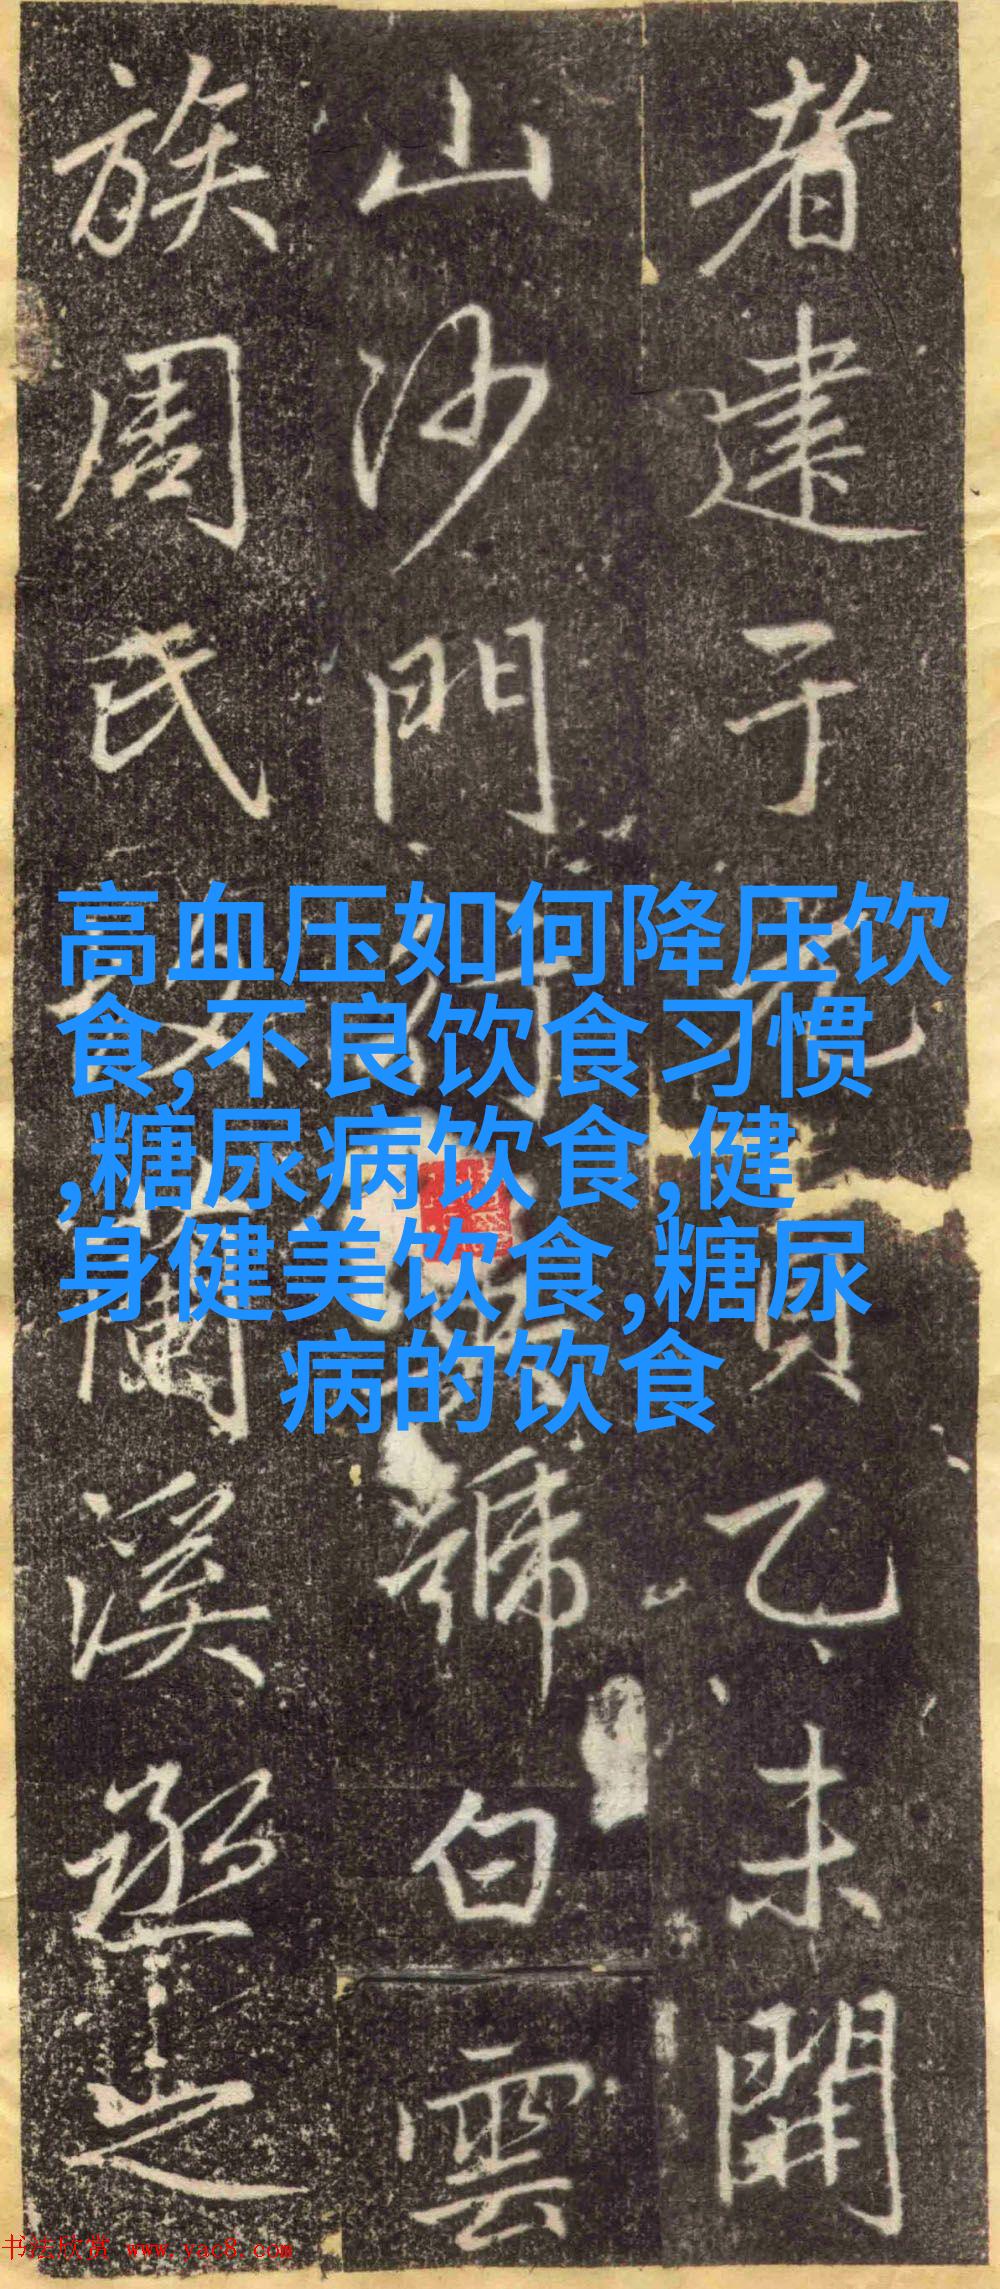 者建于元贞乙未開
山沙門
號白雲
族周氏
蘭溪丞之
高血压如何降压饮
食,不良饮食习惯
,糖尿病饮食,健
身健美饮食,糖尿
病的饮食
书法欣赏 www.yac8.com